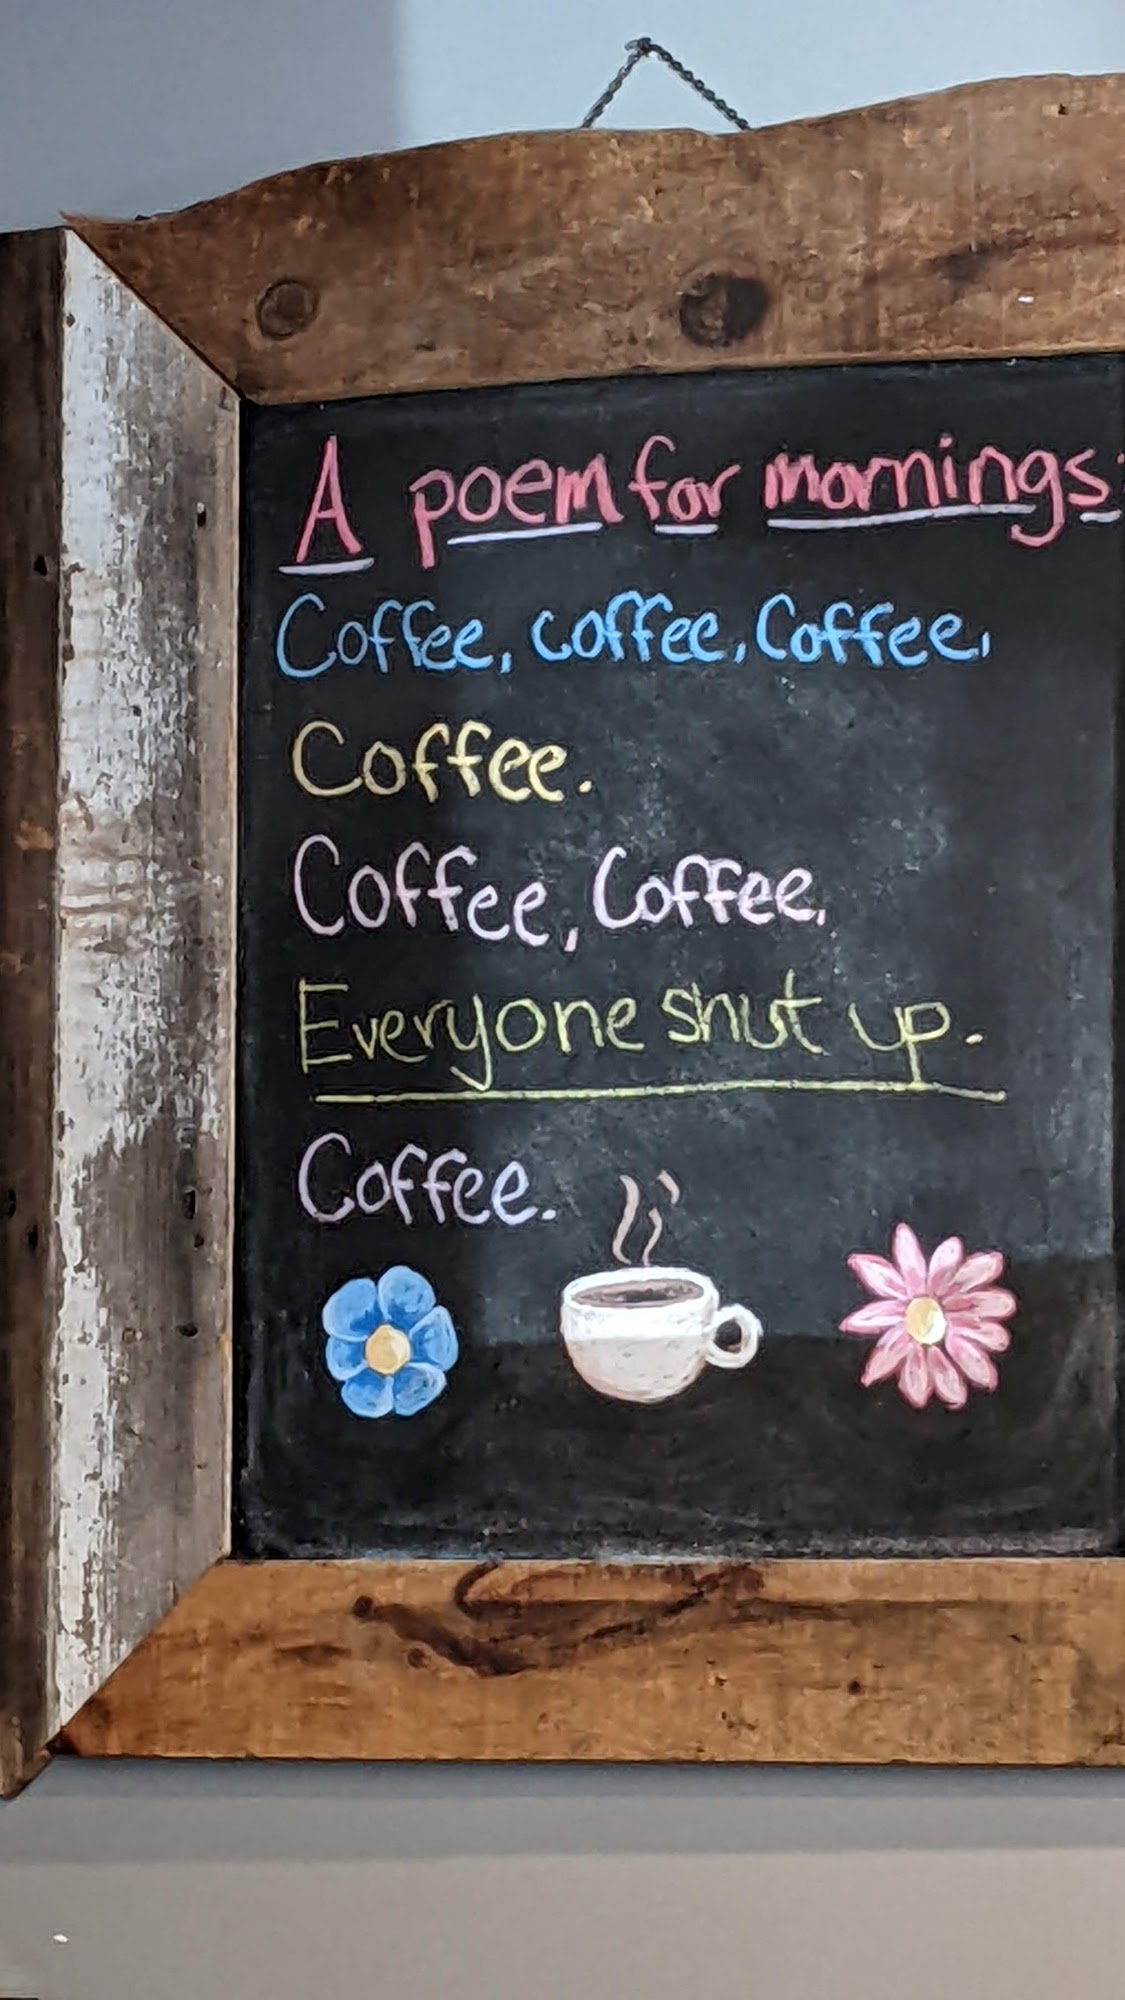 A poem for mornings:
Coffee, coffee, Coffee,
Coffee.
Coffee, Coffee,
Everyone shut up.
Coffee.